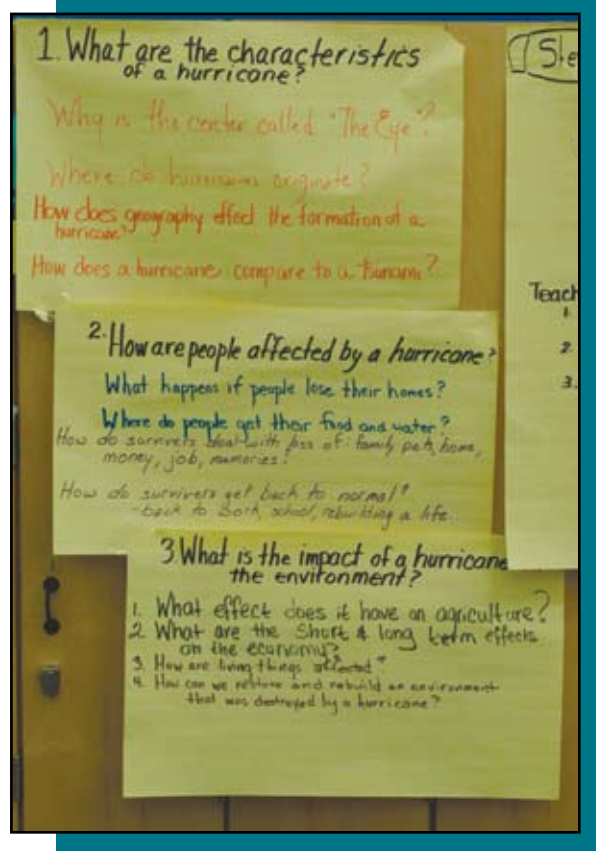 1. What are the characteristics
of a hurricane?
Why is the center called "The Eye"?
Where do hurricanes originate?
How does geography effect the formation of a
hurricane?
How does a hurricane compare to a tsunami?
2. How are people affected by a hurricane?
What happens if people lose their homes?
Where do people get their food and water?
How do survivers deal with loss of: family pets, home,
money, job, memories?
How do survivers get back to normal?
-back to work, school, rebuilding a life..
3. What is the impact of a hurricane
the environment?
1. What effect does it have on agriculture?
2 What are the short & long term effects
on the economy?
3. How are living things affected?
4. How can we restore and rebuild an environment
that was destroyed by a hurricane?
Ste
Teach
1.
2.
3.